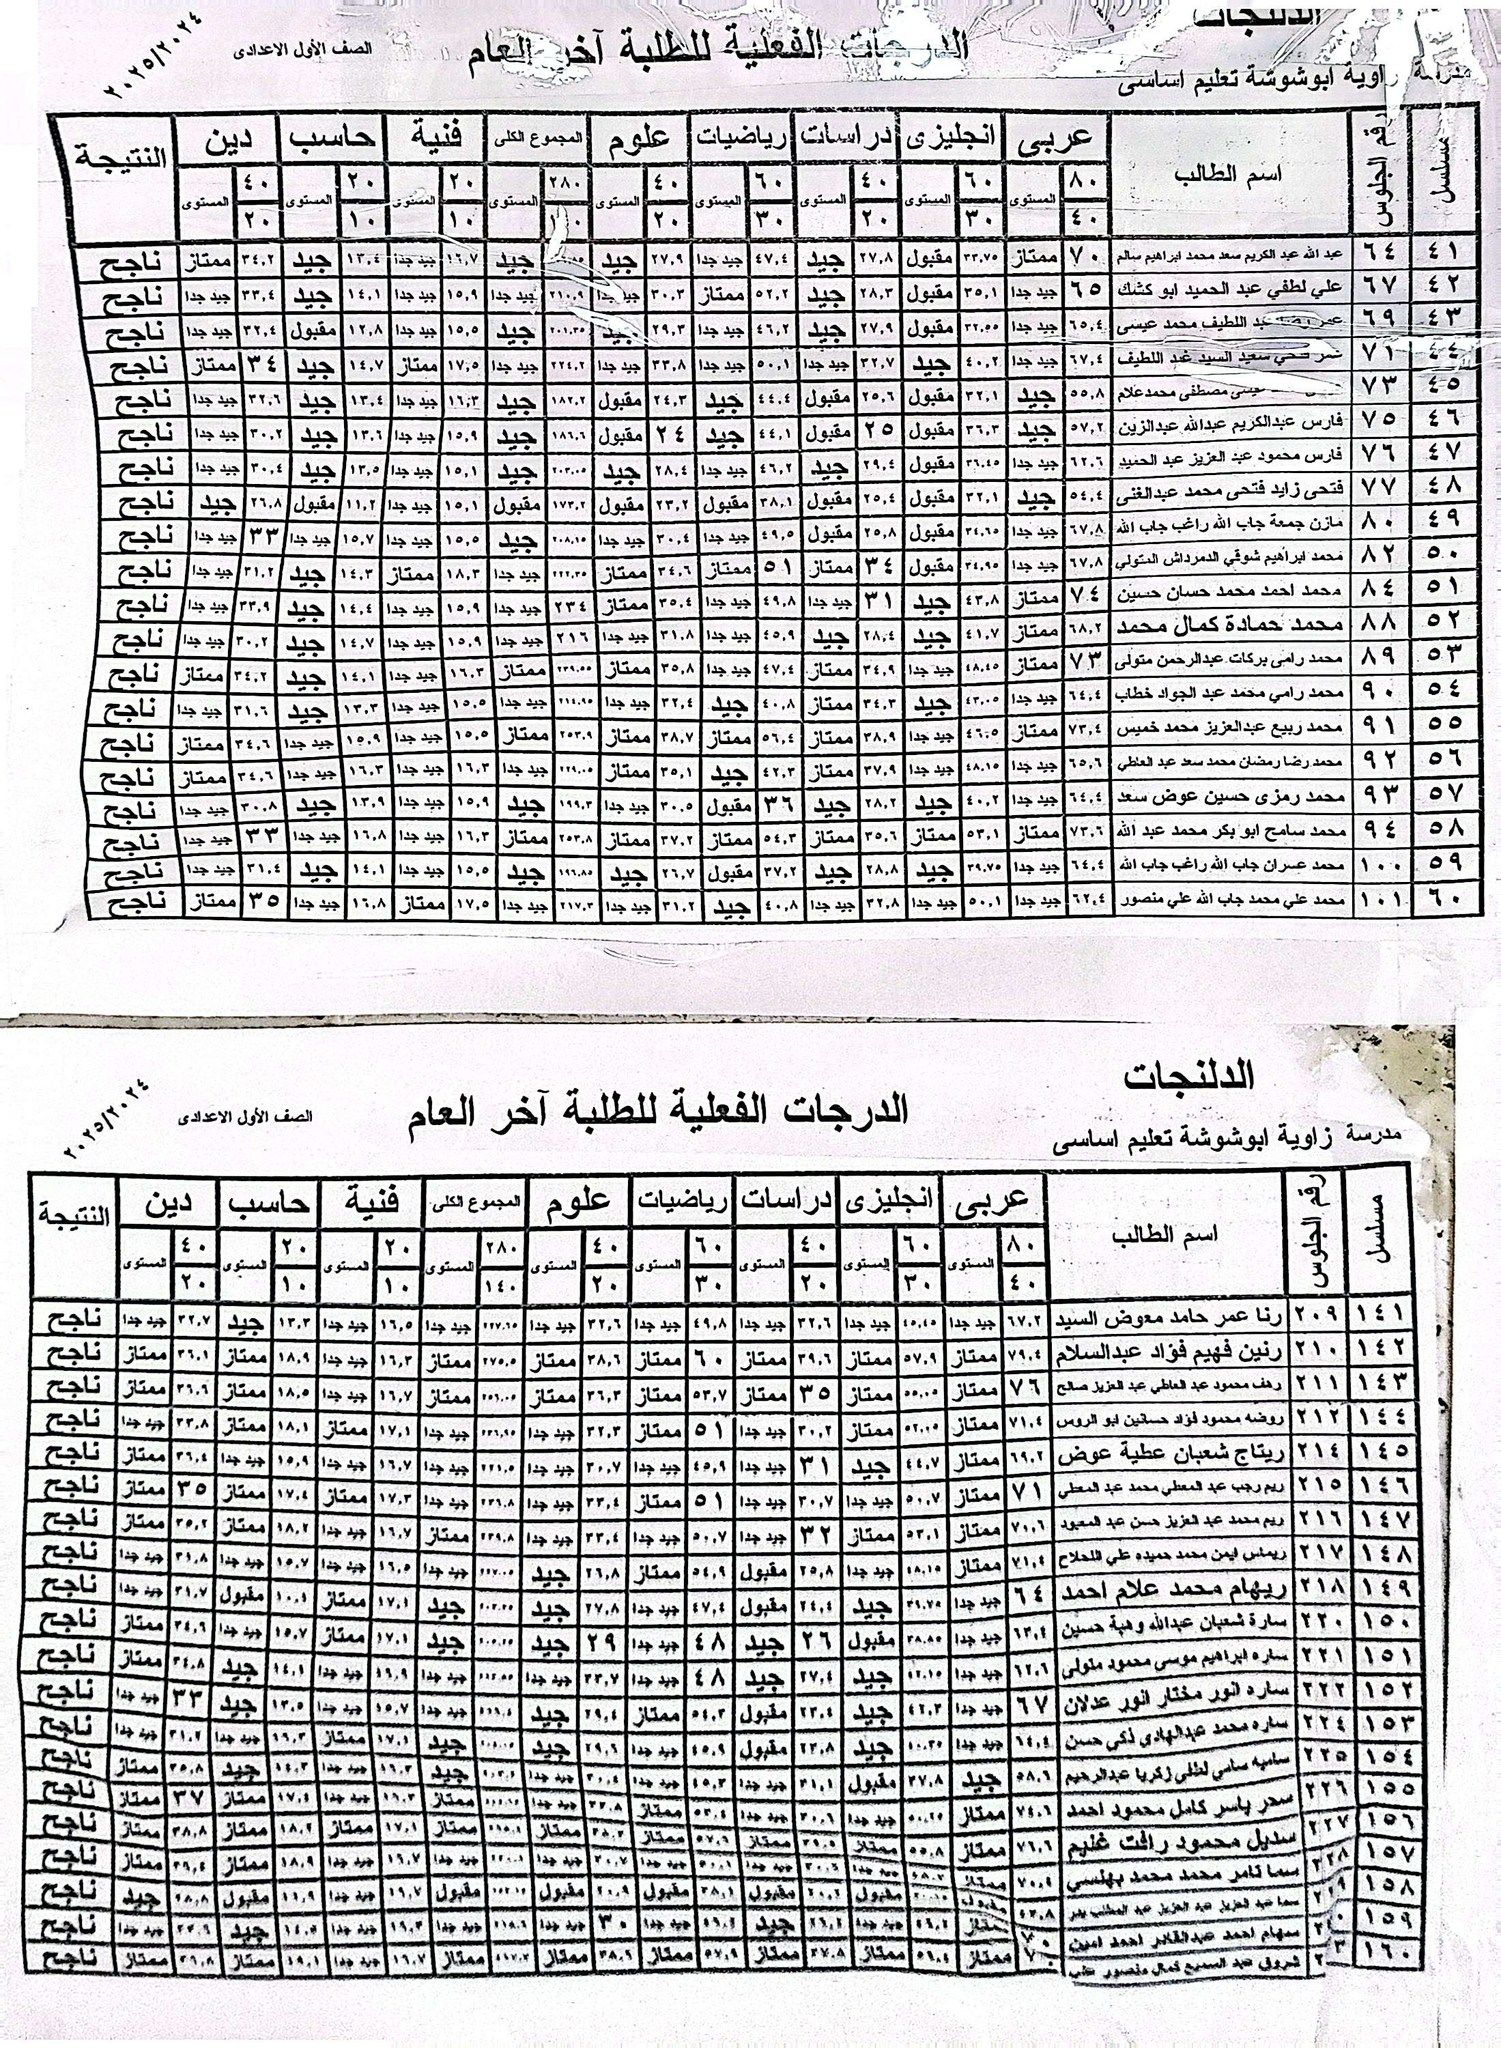 الدلنجات
الدرجات الفعلية للطلبة آخر العام
الصف الأول الاعدادى
٢٠٢٥/٢٠٢٤
مدرسة زاوية ابوشوشة تعليم اساسى
مسلسل رقم الجلوس اسم الطالب عربى انجليزى دراسات رياضيات علوم المجموع الكلى فنية حاسب دين النتيجة
٨٠ المستوى ٦٠ المستوى ٤٠ المستوى ٦٠ المستوى ٤٠ المستوى ٢٨٠ المستوى ٢٠ المستوى ٢٠ المستوى ٤٠ المستوى
٤٠ ٣٠ ٢٠ ٣٠ ٢٠ ١٠ ١٠ ٢٠
٤١ ٦٤ عبد الله عبد الكريم سعد محمد ابراهيم سالم ٧٠ ممتاز ٣٣,٧٥ مقبول ٢٧,٨ جيد ٤٧,٤ جيد جدا ٢٧,٩ جيد جيد ١٦,٧ جيد جدا ١٣,٤ جيد ٣٤,٢ ممتاز ناجح
٤٢ ٦٧ علي لطفي عبد الحميد ابو كشك ٦٥ جيد جدا ٣٥,١ مقبول ٢٨,٣ جيد ٥٢,٢ ممتاز ٣٠,٣ جيد جدا ٢١٠,٩ جيد جدا ١٥,٩ جيد جدا ١٤,١ جيد ٣٣,٤ جيد جدا ناجح
٤٣ ٦٩ عبد اللطيف محمد عيسى ٦٥,٤ جيد جدا ٣٢,٥٥ مقبول ٢٧,٩ جيد ٤٦,٢ جيد جدا ٢٩,٣ جيد ٢٠١,٣٥ جيد ١٥,٥ جيد جدا ١٢,٨ مقبول ٣٢,٤ جيد جدا ناجح
٤٤ ٧١ سعيد السيد عبد اللطيف ٦٧,٤ جيد جدا ٤٠,٢ جيد ٣٢,٧ جيد جدا ٥٠,١ جيد جدا ٣٣,٨ جيد جدا ٢٢٤,٢ جيد جدا ١٧,٥ ممتاز ١٤,٧ جيد ٣٤ ممتاز ناجح
٤٥ ٧٣ مصطفى محمد علام ٥٥,٨ جيد ٣٢,١ مقبول ٢٥,٦ مقبول ٤٤,٤ جيد ٢٤,٣ مقبول ١٨٢,٢ جيد ١٦,٣ جيد جدا ١٣,٤ جيد ٣٢,٦ جيد جدا ناجح
٤٦ ٧٥ فارس عبدالكريم عبدالله عبدالزين ٥٧,٢ جيد ٣٦,٣ مقبول ٢٥ مقبول ٤٤,١ جيد ٢٤ مقبول ١٨٦,٦ جيد ١٥,٩ جيد جدا ١٣,٦ جيد ٣٠,٢ جيد جدا ناجح
٤٧ ٧٦ فارس محمود عبد العزيز عبد الحميد ٦٢,٦ جيد جدا ٣٦,٤٥ مقبول ٢٩,٤ جيد ٤٦,٢ جيد جدا ٢٨,٤ جيد ٢٠٣,٠٥ جيد ١٥,١ جيد جدا ١٣,٥ جيد ٣٠,٤ جيد جدا ناجح
٤٨ ٧٧ فتحى زايد فتحى محمد عبدالغنى ٥٤,٤ جيد ٣٢,١ مقبول ٢٥,٤ مقبول ٣٨,١ مقبول ٢٣,٢ مقبول ١٧٣,٢ مقبول ١٥,١ جيد جدا ١١,٢ مقبول ٢٦,٨ جيد ناجح
٤٩ ٨٠ مازن جمعة جاب الله راغب جاب الله ٦٧,٨ جيد جدا ٣٤,٦٥ مقبول ٢٥,٨ مقبول ٤٩,٥ جيد جدا ٣٠,٤ جيد جدا ٢٠٨,١٥ جيد ١٥,٥ جيد جدا ١٥,٧ جيد جدا ٣٣ جيد جدا ناجح
٥٠ ٨٢ محمد ابراهيم شوقي الدمرداش المتولي ٦٧,٨ جيد جدا ٣٤,٩٥ مقبول ٣٤ ممتاز ٥١ ممتاز ٣٤,٦ ممتاز ٢٢٢,٣٥ جيد جدا ١٨,٣ ممتاز ١٤,٣ جيد ٣١,٢ جيد جدا ناجح
٥١ ٨٤ محمد احمد محمد حسان حسين ٧٤ ممتاز ٤٣,٨ جيد ٣١ جيد جدا ٤٩,٨ جيد جدا ٣٥,٤ ممتاز ٢٣٤ جيد جدا ١٥,٩ جيد جدا ١٤,٤ جيد ٣٣,٩ جيد جدا ناجح
٥٢ ٨٨ محمد حمادة كمال محمد ٦٨,٢ ممتاز ٤١,٧ جيد ٢٨,٤ جيد ٤٥,٩ جيد جدا ٣١,٨ جيد جدا ٢١٦ جيد جدا ١٥,٩ جيد جدا ١٤,٧ جيد ٣٠,٢ جيد جدا ناجح
٥٣ ٨٩ محمد رامى بركات عبدالرحمن متولى ٧٣ ممتاز ٤٨,٤٥ جيد جدا ٣٤,٩ ممتاز ٤٧,٤ جيد جدا ٣٥,٨ ممتاز ٢٣٩,٥٥ ممتاز ١٦,٣ جيد جدا ١٤,١ جيد ٣٤,٢ ممتاز ناجح
٥٤ ٩٠ محمد رامي محمد عبد الجواد خطاب ٦٤,٤ جيد جدا ٤٣,٠٥ جيد ٣٤,٣ ممتاز ٤٠,٨ جيد ٣٢,٤ جيد جدا ٢١٤,٩٥ جيد جدا ١٥,٥ جيد جدا ١٣,٣ جيد ٣١,٦ جيد جدا ناجح
٥٥ ٩١ محمد ربيع عبدالعزيز محمد خميس ٧٣,٤ ممتاز ٤٦,٥ جيد جدا ٣٨,٩ ممتاز ٥٦,٤ ممتاز ٣٨,٧ ممتاز ٢٥٣,٩ ممتاز ١٥,٥ جيد جدا ١٥,٩ جيد جدا ٣٤,٦ ممتاز ناجح
٥٦ ٩٢ محمد رضا رمضان محمد سعد عبد العاطي ٦٥,٦ جيد جدا ٤٨,١٥ جيد جدا ٣٧,٩ ممتاز ٤٢,٣ جيد ٣٥,١ ممتاز ٢٢٩,٠٥ جيد جدا ١٦,٣ جيد جدا ١٦,٣ جيد جدا ٣٤,٦ ممتاز ناجح
٥٧ ٩٣ محمد رمزى حسين عوض سعد ٦٤,٤ جيد جدا ٤٠,٢ جيد ٢٨,٢ جيد ٣٦ مقبول ٣٠,٥ جيد جدا ١٩٩,٣ جيد ١٥,٩ جيد جدا ١٣,٩ جيد ٣٠,٨ جيد جدا ناجح
٥٨ ٩٤ محمد سامح ابو بكر محمد عبد الله ٧٣,٦ ممتاز ٥٣,١ ممتاز ٣٥,٦ ممتاز ٥٤,٣ ممتاز ٣٧,٢ ممتاز ٢٥٣,٨ ممتاز ١٦,٣ جيد جدا ١٦,٨ جيد جدا ٣٣ جيد جدا ناجح
٥٩ ١٠٠ محمد عمران جاب الله راغب جاب الله ٦٤,٤ جيد جدا ٣٩,٧٥ جيد ٢٨,٨ جيد ٣٧,٢ مقبول ٢٦,٧ جيد ١٩٦,٨٥ جيد ١٥,٥ جيد جدا ١٤,١ جيد ٣١,٤ جيد جدا ناجح
٦٠ ١٠١ محمد علي محمد جاب الله علي منصور ٦٢,٤ جيد جدا ٥٠,١ جيد جدا ٣٢,٨ جيد جدا ٤٠,٨ جيد ٣١,٢ جيد جدا ٢١٧,٣ جيد جدا ١٧,٥ ممتاز ١٦,٨ جيد جدا ٣٥ ممتاز ناجح
الدلنجات
الدرجات الفعلية للطلبة آخر العام
الصف الأول الاعدادى
٢٠٢٥/٢٠٢٤
مدرسة زاوية ابوشوشة تعليم اساسى
مسلسل رقم الجلوس اسم الطالب عربى انجليزى دراسات رياضيات علوم المجموع الكلى فنية حاسب دين النتيجة
٨٠ المستوى ٦٠ المستوى ٤٠ المستوى ٦٠ المستوى ٤٠ المستوى ٢٨٠ المستوى ٢٠ المستوى ٢٠ المستوى ٤٠ المستوى
٤٠ ٣٠ ٢٠ ٣٠ ٢٠ ١٤٠ ١٠ ١٠ ٢٠
١٤١ ٢٠٩ رنا عمر حامد معوض السيد ٦٧,٢ جيد جدا ٤٥,٤٥ جيد جدا ٣٢,٦ جيد جدا ٤٩,٨ جيد جدا ٣٢,٦ جيد جدا ٢٢٧,٦٥ جيد جدا ١٦,٥ جيد جدا ١٣,٣ جيد ٣٢,٧ جيد جدا ناجح
١٤٢ ٢١٠ رنين فهيم فؤاد عبدالسلام ٧٩,٤ ممتاز ٥٧,٩ ممتاز ٣٩,٦ ممتاز ٦٠ ممتاز ٣٨,٦ ممتاز ٢٧٥,٥ ممتاز ١٦,٣ جيد جدا ١٨,٩ ممتاز ٣٦,١ ممتاز ناجح
١٤٣ ٢١١ رهف محمود عبد العاطي عبد العزيز صالح ٧٦ ممتاز ٥٥,٠٥ ممتاز ٣٥ ممتاز ٥٣,٧ ممتاز ٣٦,٣ ممتاز ٢٥٦,٠٥ ممتاز ١٦,٧ جيد جدا ١٨,٥ ممتاز ٣٦,٦ ممتاز ناجح
١٤٤ ٢١٢ روضه محمود فؤاد حسانين ابو الروس ٧١,٤ ممتاز ٥٢,٠٥ ممتاز ٣٠,٢ جيد جدا ٥١ ممتاز ٣٢,٣ جيد جدا ٢٣٦,٩٥ جيد جدا ١٧,١ ممتاز ١٨,١ ممتاز ٣٣,٨ جيد جدا ناجح
١٤٥ ٢١٤ ريتاج شعبان عطية عوض ٦٩,٢ ممتاز ٤٤,٧ جيد ٣١ جيد جدا ٤٥,٩ جيد جدا ٣٠,٧ جيد جدا ٢٢١,٥ جيد جدا ١٦,٧ جيد جدا ١٥,٩ جيد جدا ٣٦,٤ ممتاز ناجح
١٤٦ ٢١٥ ريم رجب عبد المعطي محمد عبد المعطي ٧١ ممتاز ٥٠,٧ جيد جدا ٣٠,٧ جيد جدا ٥١ ممتاز ٣٣,٤ جيد جدا ٢٣٦,٨ جيد جدا ١٧,٣ ممتاز ١٧,٤ ممتاز ٣٥ ممتاز ناجح
١٤٧ ٢١٦ ريم محمد عبد العزيز حسن عبد المعبود ٧١,٦ ممتاز ٥٣,١ ممتاز ٣٢ جيد جدا ٥٠,٧ جيد جدا ٣٣,٤ جيد جدا ٢٣٩,٨ ممتاز ١٦,٧ جيد جدا ١٨,٢ ممتاز ٣٥,٢ ممتاز ناجح
١٤٨ ٢١٧ ريماس ايمن محمد حميده علي اللحلاح ٧١,٤ ممتاز جيد جدا ٢٥,٨ مقبول ٥٤,٩ ممتاز ٢٦,٨ جيد جيد جدا ١٦,٥ جيد جدا ١٥,٧ جيد جدا ٣١,٨ جيد جدا ناجح
١٤٩ ٢١٨ ريهام محمد علام احمد ٦٤ جيد جدا ٣٩,٧٥ جيد ٢٤,٤ مقبول ٤٧,٤ جيد جدا ٢٧,٨ جيد جيد ١٧,١ ممتاز ١٠,١ مقبول ٣١,٧ جيد جدا ناجح
١٥٠ ٢٢٠ سارة شعبان عبدالله وهبة حسين ٦٣,٤ جيد جدا ٣٨,٨٥ مقبول ٢٦ جيد ٤٨ جيد جدا ٢٩ جيد جيد ١٧,١ ممتاز ١٥,٧ جيد جدا ٣٤,٦ ممتاز ناجح
١٥١ ٢٢١ ساره ابراهيم موسى محمود متولى ٦٢,٦ جيد جدا ٤٢,١٥ جيد ٢٧,٤ جيد ٤٨ جيد جدا ٣٣,٧ جيد جدا جيد جدا ١٦,٩ جيد جدا ١٤,١ جيد ٣٤,٨ ممتاز ناجح
١٥٢ ٢٢٢ ساره انور مختار انور عدلان ٦٧ جيد جدا ٤٢,٣ جيد ٢٣,٤ مقبول ٥٤,٣ ممتاز ٢٩,٤ جيد جيد جدا ١٥,٧ جيد جدا ١٣,٥ جيد ٣٣ جيد جدا ناجح
١٥٣ ٢٢٤ ساره محمد عبدالهادى ذكى حسن ٦٤,٤ جيد جدا جيد ٢٣,٨ مقبول ٤٥,٩ جيد جدا ٢٩,٦ جيد جيد ١٧,١ ممتاز ١٦,٣ جيد جدا ٣١,٢ جيد جدا ناجح
١٥٤ ٢٢٥ ساميه سامي لطفى زكريا عبدالرحيم ٥٨,٦ جيد ٣٧,٨ مقبول ٣١,١ جيد جدا ٤٥,٣ جيد جدا ٣٠,٤ جيد جدا جيد ١٦,٣ جيد جدا ١٤,٣ جيد ٣٥,٨ ممتاز ناجح
١٥٥ ٢٢٦ سحر ياسر كامل محمود احمد ٧٤,٦ ممتاز جيد جدا ٣٠,٦ جيد جدا ٥٣,٤ ممتاز ٣٣,٨ جيد جدا ممتاز ١٦,٣ جيد جدا ١٧,٤ ممتاز ٣٧ ممتاز ناجح
١٥٦ ٢٢٧ سديل محمود رافت غنيم ٧٦,٦ ممتاز ٥٥,٨ ممتاز ٣٩,٥ ممتاز ٥٧,٦ ممتاز ممتاز ممتاز ١٧,١ ممتاز ١٨,٢ ممتاز ٣٨,٨ ممتاز ناجح
١٥٧ ٢٢٨ سما تامر محمد محمد بهنسي ٧٠,٩ ممتاز جيد جدا جيد جدا جيد جدا ٣٠,٧ جيد جدا جيد جدا ١٦,٧ جيد جدا ١٨,٩ ممتاز ٣٦,٤ ممتاز ناجح
١٥٨ سما عبد العزيز عبد العزيز عبد المطلب ٤٣,٨ مقبول مقبول مقبول مقبول ٢٠,٩ مقبول مقبول ١٦,٧ جيد جدا ١١,٩ مقبول ٢٨,٨ جيد ناجح
١٥٩ سهام احمد عبدالقادر احمد امين ممتاز جيد جدا جيد جيد جدا ٣٠ جيد جدا جيد جدا ١٦,٣ جيد جدا ١٤,٥ جيد جيد جدا ناجح
١٦٠ شروق عبد السميع كمال منصور ممتاز ٥٦,٤ ممتاز ٣٧,٨ ممتاز ٥٧,٩ ممتاز ٣٨,٦ ممتاز ممتاز ١٦,٧ جيد جدا ١٩,١ ممتاز ٣٦,٨ ممتاز ناجح